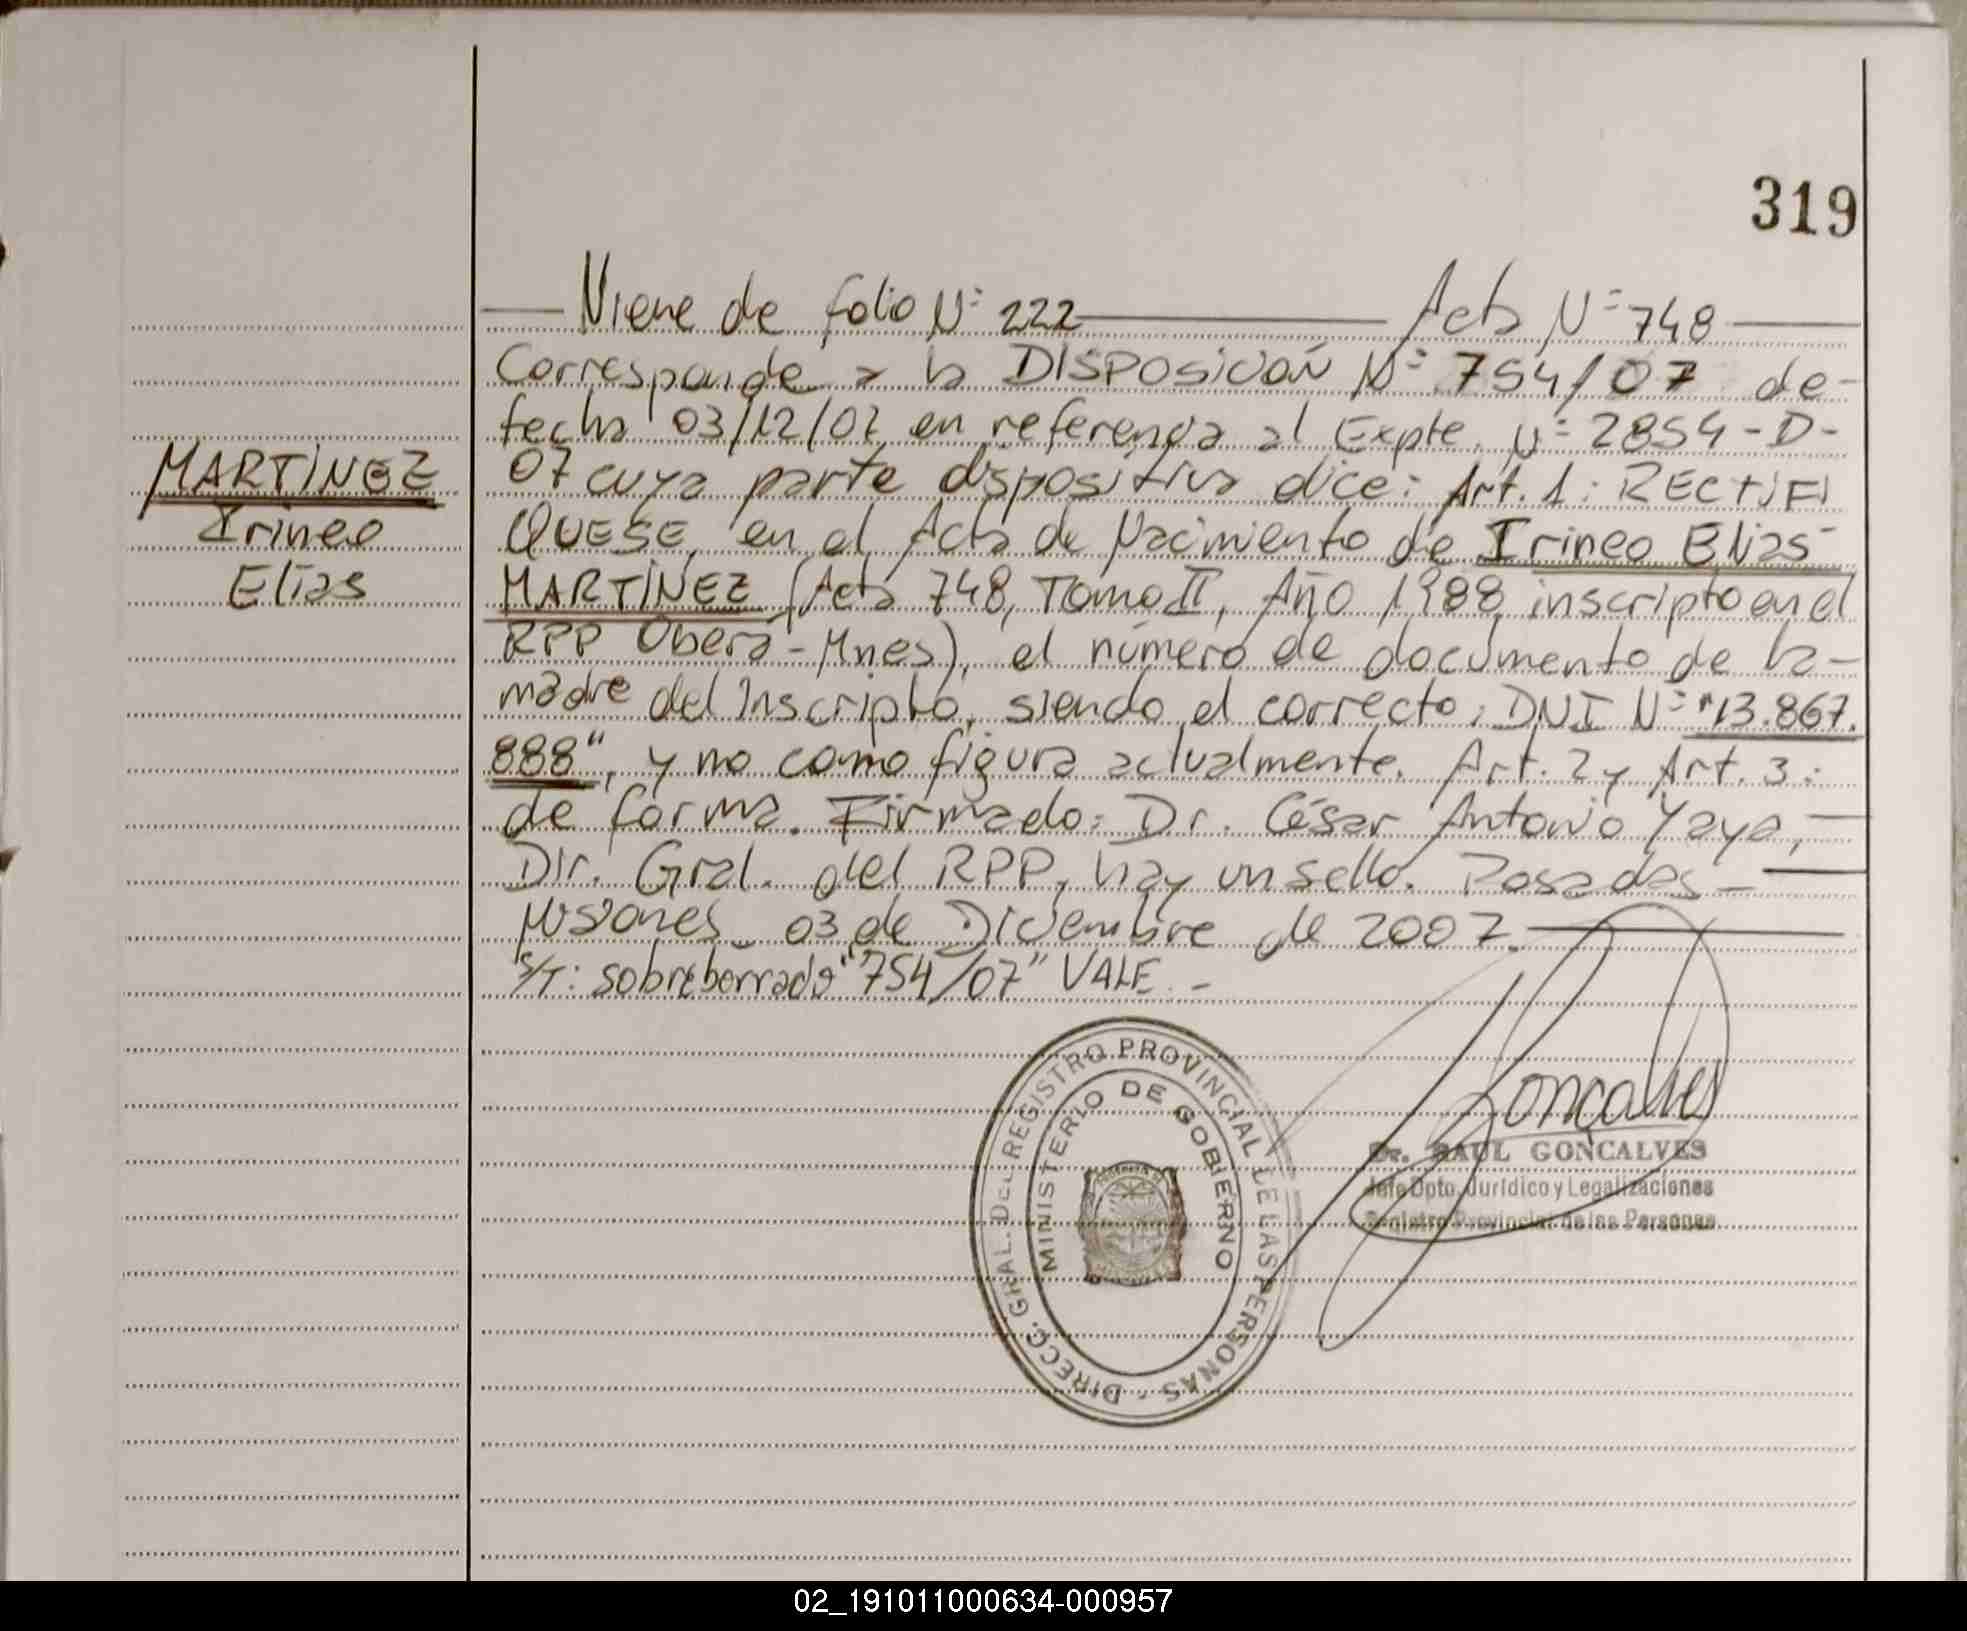 319
Viene de folio Nº 222 Acta Nº 748
Corresponde a la DISPOSICIÓN Nº 754/07 de-
fecha 03/12/07 en referencia al Expte. Nº 2854-D-
MARTÍNEZ
07 cuya parte dispositiva dice: Art. 1: RECTIFI
Irineo
QUESE, en el Acta de Nacimiento de Irineo Elias-
Elias
MARTÍNEZ (Acta 748, Tomo II, Año 1988, inscripto en el
RPP Oberá-Mnes), el número de documento de la-
madre del Inscripto, siendo el correcto: DNI Nº "13.867.
888", y no como figura actualmente. Art. 2 y Art. 3:
de forma. Firmado: Dr. César Antonio Yaya,
Dir. Gral. del RPP, hay un sello. Posadas-
Misiones 03 de Diciembre de 2007.
S/T: sobreborrado "754/07" VALE.-
DIRECC. GRAL. DEL REGISTRO PROVINCIAL DE LAS PERSONAS -
MINISTERIO DE GOBIERNO
Goncalves
Dr. RAUL GONCALVES
Jefe Dpto. Jurídico y Legalizaciones
Registro Provincial de las Personas
02_191011000634-000957